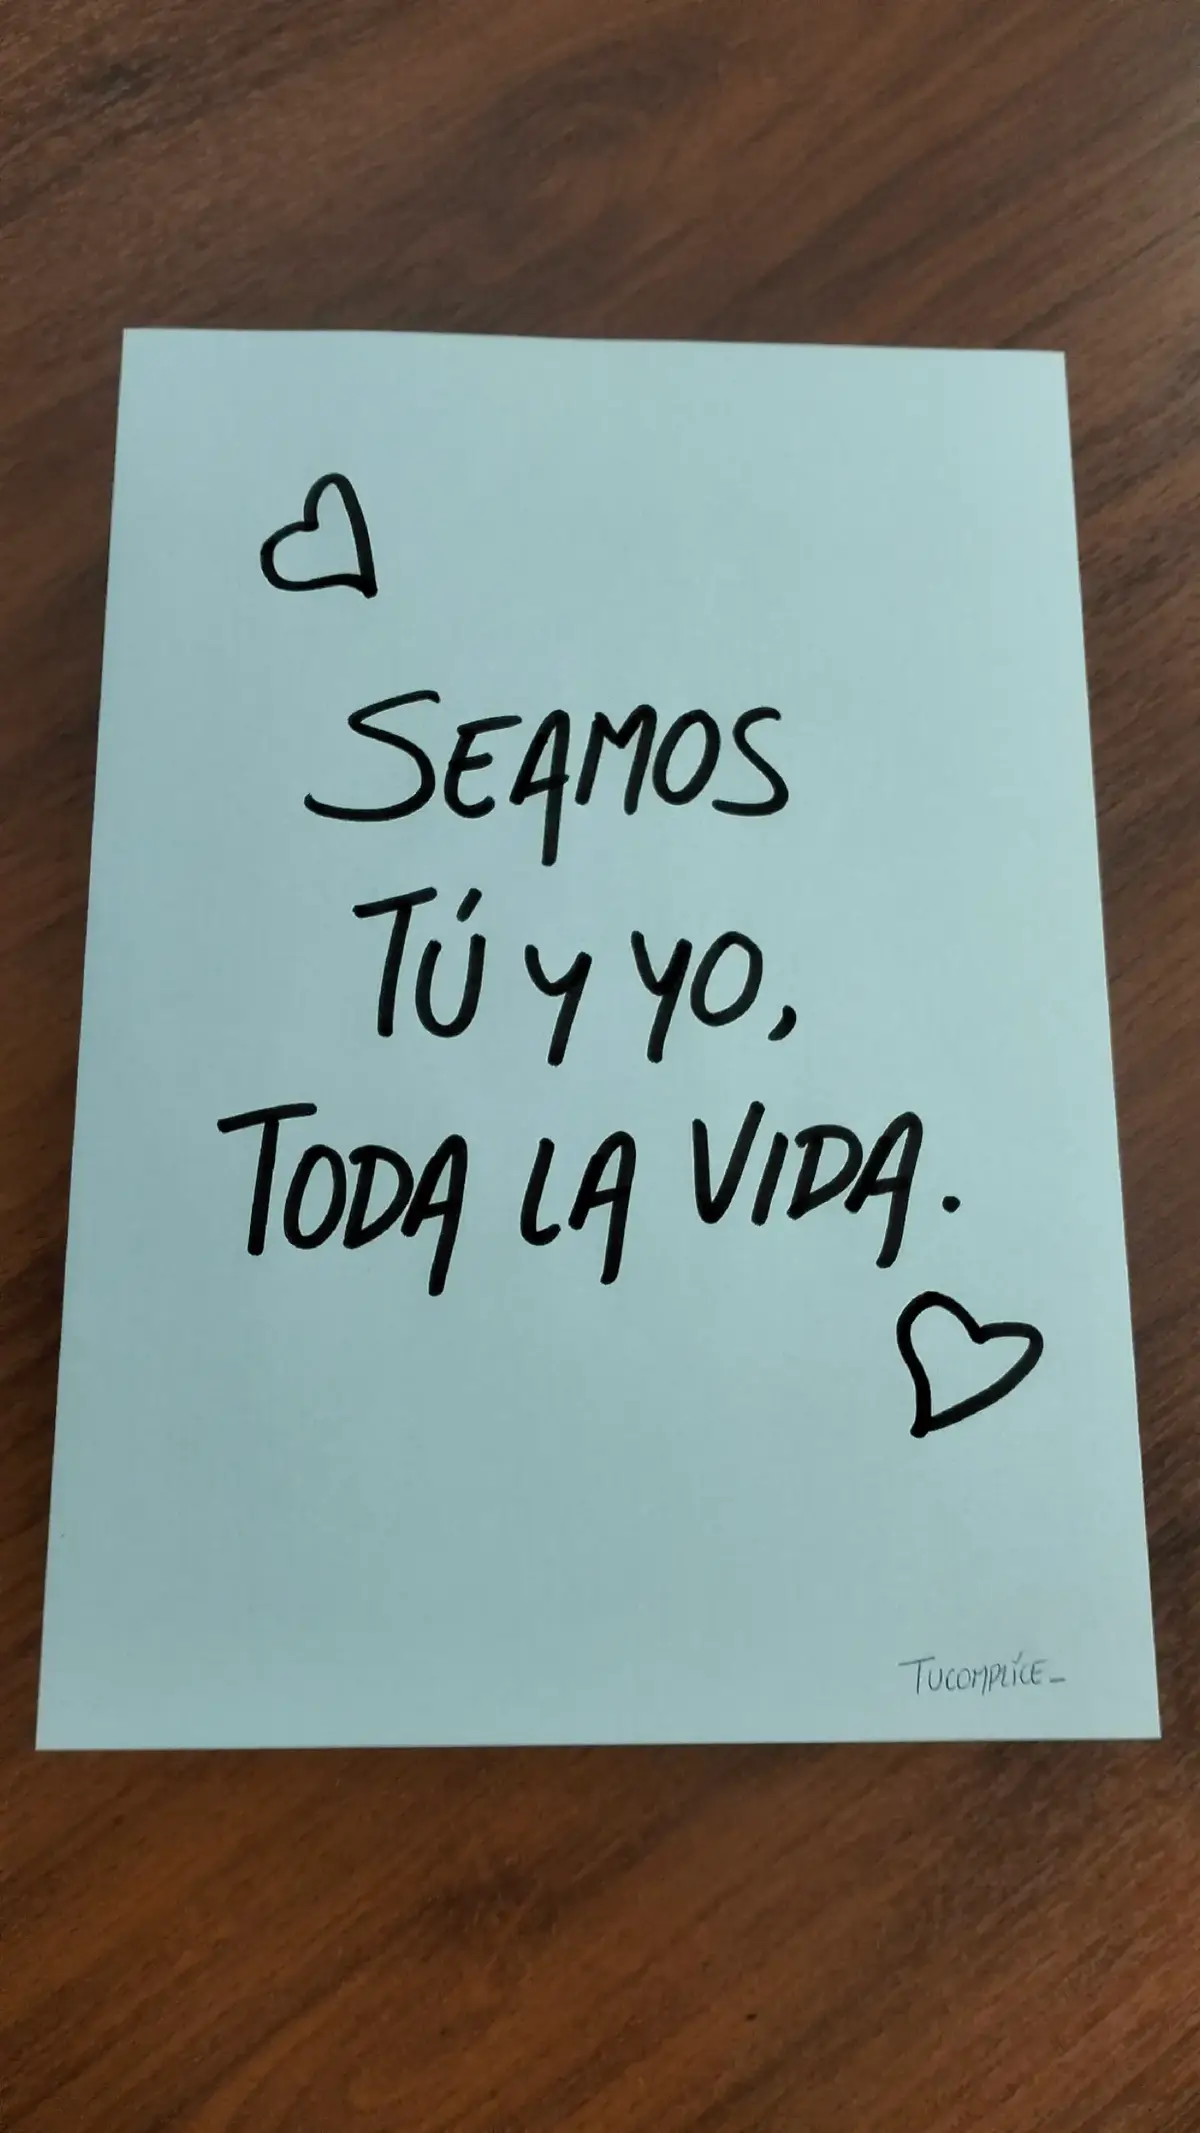 SEAMOS
TÚ Y YO,
TODA LA VIDA.
TUCOMPLICE_